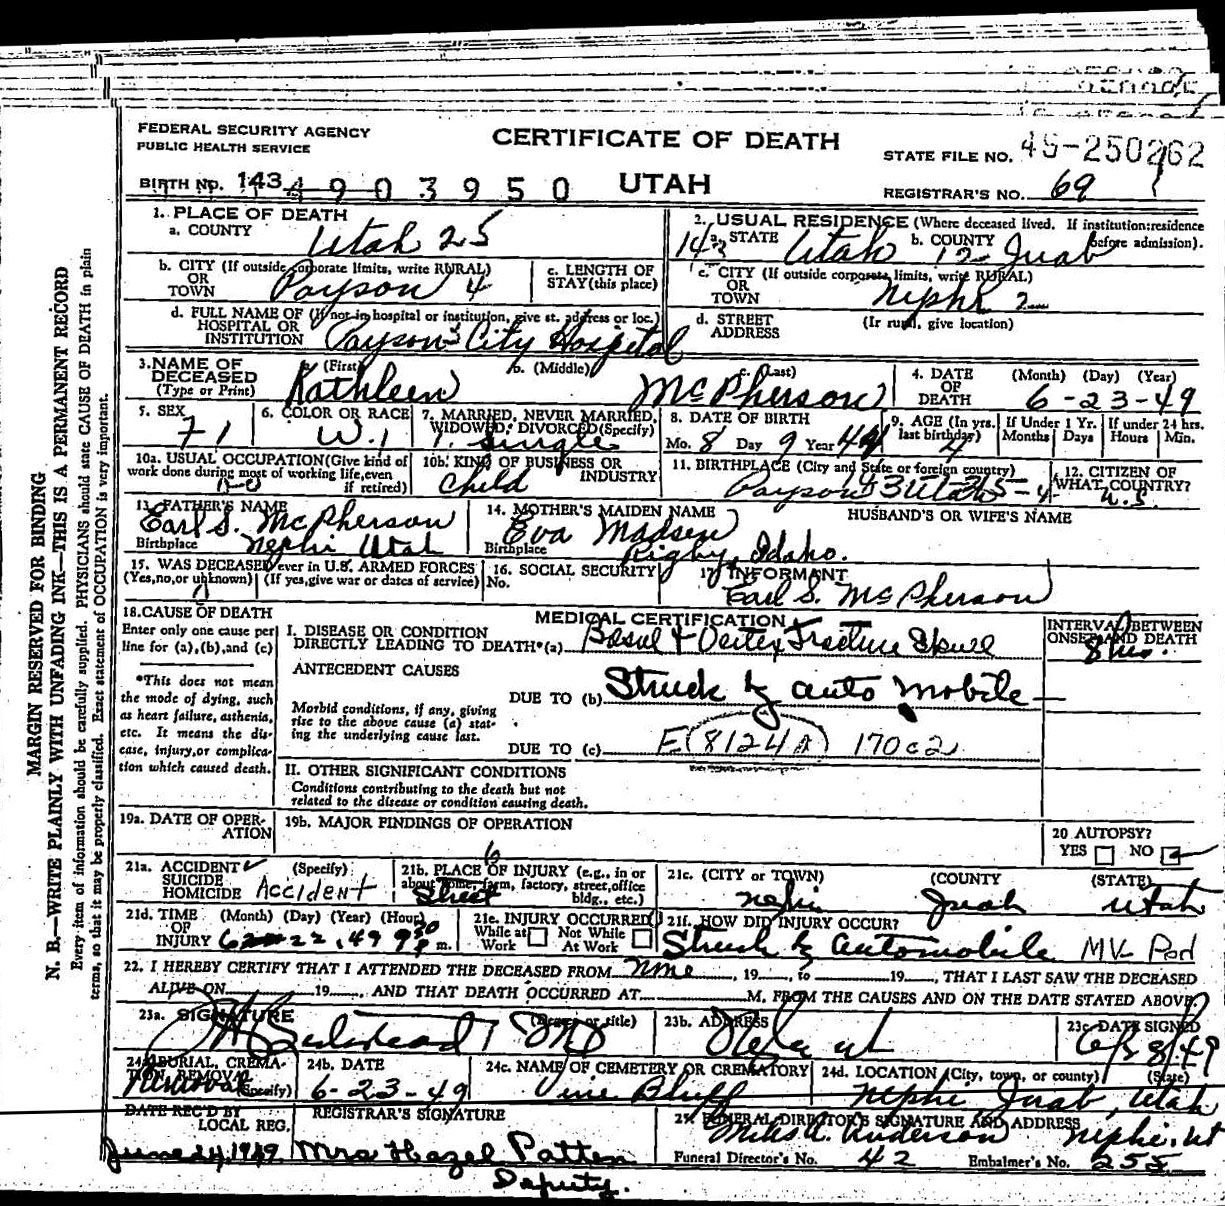 CERTIFICATE OF DEATH
FEDERAL SECURITY AGENCY
PUBLIC HEALTH SERVICE
STATE FILE NO. 49-250262
BIRTH NO. 143 4903950 UTAH
REGISTRAR'S NO. 69
1. PLACE OF DEATH
a. COUNTY Utah 25
2. USUAL RESIDENCE (Where deceased lived. If institution: residence before admission).
a. STATE Utah b. COUNTY 12 Juab
b. CITY (If outside corporate limits, write RURAL) OR TOWN Payson 4
c. LENGTH OF STAY (this place)
c. CITY (If outside corporate limits, write RURAL) OR TOWN Nephi 2
d. FULL NAME OF (If not in hospital or institution, give st. address or loc.) HOSPITAL OR INSTITUTION Payson City Hospital
d. STREET ADDRESS (Ir rural, give location)
3. NAME OF DECEASED (Type or Print)
a. (First) Kathleen b. (Middle) c. (Last) McPherson
4. DATE OF DEATH (Month) (Day) (Year) 6-23-49
5. SEX F 1
6. COLOR OR RACE W. 1
7. MARRIED, NEVER MARRIED, WIDOWED, DIVORCED (Specify) 1. Single
8. DATE OF BIRTH Mo. 8 Day 9 Year 44
9. AGE (In yrs. last birthday) 4
If Under 1 Yr. Months Days
If under 24 hrs. Hours Min.
10a. USUAL OCCUPATION (Give kind of work done during most of working life, even if retired)
10b. KIND OF BUSINESS OR INDUSTRY Child
11. BIRTHPLACE (City and State or foreign country) Payson, Utah 143 25-4
12. CITIZEN OF WHAT COUNTRY? U.S.
13. FATHER'S NAME Earl S. McPherson
Birthplace Nephi Utah
14. MOTHER'S MAIDEN NAME Eva Madsen
Birthplace Rigby, Idaho.
HUSBAND'S OR WIFE'S NAME
15. WAS DECEASED ever in U.S. ARMED FORCES
(Yes, no, or unknown) (If yes, give war or dates of service)
16. SOCIAL SECURITY No.
17. INFORMANT Earl S. McPherson
18. CAUSE OF DEATH
Enter only one cause per line for (a), (b), and (c)
*This does not mean the mode of dying, such as heart failure, asthenia, etc. It means the disease, injury, or complication which caused death.
MEDICAL CERTIFICATION
I. DISEASE OR CONDITION
DIRECTLY LEADING TO DEATH*(a) Basal & Vertex Fracture Skull
INTERVAL BETWEEN ONSET AND DEATH 8 hrs.
ANTECEDENT CAUSES
DUE TO (b) Struck by automobile
Morbid conditions, if any, giving rise to the above cause (a) stating the underlying cause last.
DUE TO (c) E(8124A) 170c2
II. OTHER SIGNIFICANT CONDITIONS
Conditions contributing to the death but not related to the disease or condition causing death.
19a. DATE OF OPERATION
19b. MAJOR FINDINGS OF OPERATION
20 AUTOPSY?
YES NO ✓
21a. ACCIDENT ✓ SUICIDE HOMICIDE (Specify) Accident
21b. PLACE OF INJURY (e.g., in or about home, farm, factory, street, office bldg., etc.) Street 6
21c. (CITY or TOWN) (COUNTY (STATE)
Nephi Juab Utah
21d. TIME OF INJURY (Month) (Day) (Year) (Hour) 6-22, 49 9:30 P m.
21e. INJURY OCCURRED While at Work Not While At Work
21f. HOW DID INJURY OCCUR?
Struck by automobile MV-Ped
22. I HEREBY CERTIFY THAT I ATTENDED THE DECEASED FROM none, 19, to 19, THAT I LAST SAW THE DECEASED
ALIVE ON 19, AND THAT DEATH OCCURRED AT M, FROM THE CAUSES AND ON THE DATE STATED ABOVE.
23a. SIGNATURE (Degree or title) MD
23b. ADDRESS
23c. DATE SIGNED
24a. BURIAL, CREMATION, REMOVAL (Specify) Removal
24b. DATE 6-23-49
24c. NAME OF CEMETERY OR CREMATORY Vine Bluff
24d. LOCATION (City, town, or county) (State)
Nephi Juab, Utah
DATE REC'D BY LOCAL REG. June 24, 1949
REGISTRAR'S SIGNATURE
Mrs Hazel Patten
Deputy.
25. FUNERAL DIRECTOR'S SIGNATURE AND ADDRESS
Miles A. Anderson Nephi, Ut
Funeral Director's No. 42 Embalmer's No. 255
MARGIN RESERVED FOR BINDING
N. B.—WRITE PLAINLY WITH UNFADING INK—THIS IS A PERMANENT RECORD
Every item of information should be carefully supplied. PHYSICIANS should state CAUSE OF DEATH in plain
terms, so that it may be properly classified. Exact statement of OCCUPATION is very important.